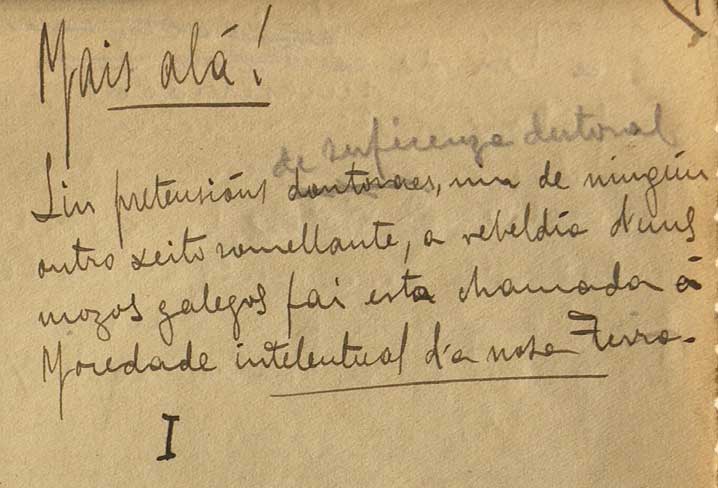 Mais alá!
de suficenza doutoral
Sin pretensións doutoraes, nin de ningún
outro xeito somellante, a rebeldía d'uns
mozos galegos fai esta chamada á
Mocedade intelentual d'a nosa Terra.
I